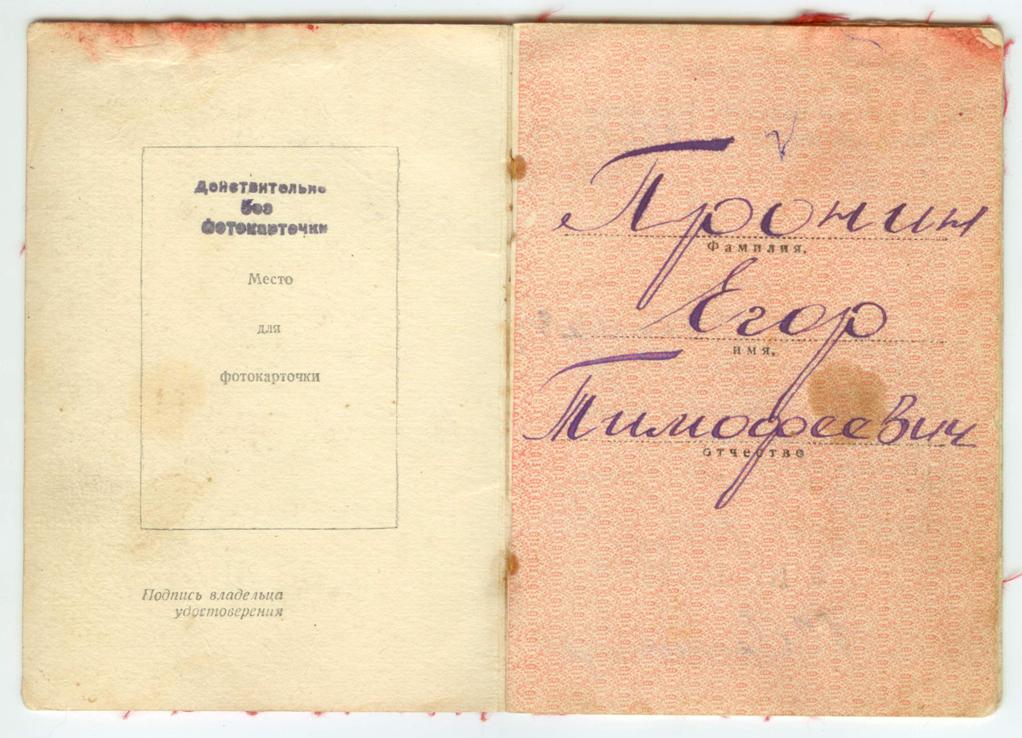 Действительно
без
фотокарточки
Место
для
фотокарточки
Подпись владельца
удостоверения
Пронин
Фамилия,
Егор
имя,
Тимофеевич
отчество